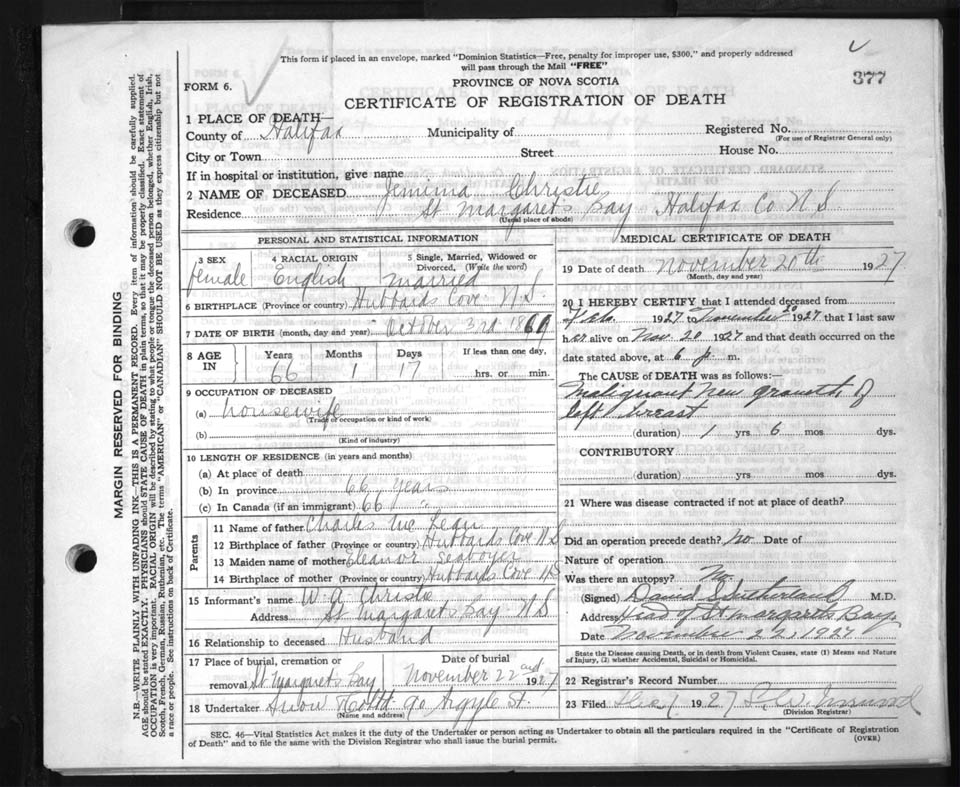 This form if placed in an envelope, marked "Dominion Statistics—Free, penalty for improper use, $300," and properly addressed
will pass through the Mail "FREE"
377
FORM 6.
PROVINCE OF NOVA SCOTIA
CERTIFICATE OF REGISTRATION OF DEATH
1 PLACE OF DEATH—
County of Halifax Municipality of Registered No.
(For use of Registrar General only)
City or Town Street House No.
If in hospital or institution, give name
2 NAME OF DECEASED Jemima Christie
Residence St Margarets Bay Halifax Co N S.
(Usual place of abode)
PERSONAL AND STATISTICAL INFORMATION
3 SEX 4 RACIAL ORIGIN 5 Single, Married, Widowed or
Divorced, (Write the word)
female English married
6 BIRTHPLACE (Province or country) Hubbards Cove N.S.
7 DATE OF BIRTH (month, day and year) October 3rd
8 AGE
IN
Years Months Days If less than one day,
66 1 17 hrs. or min.
9 OCCUPATION OF DECEASED
(a) housewife
(Trade of occupation or kind of work)
(b)
(Kind of industry)
10 LENGTH OF RESIDENCE (in years and months)
(a) At place of death
(b) In province 66 years
(c) In Canada (if an immigrant) 66 "
Parents
11 Name of father Charles Mc Lean
12 Birthplace of father (Province or country) Hubbards Cove N S
13 Maiden name of mother Eleanor Seaboyer
14 Birthplace of mother (Province or country) Hubbards Cove N S
15 Informant's name W A Christie
Address St Margarets Bay N S
16 Relationship to deceased Husband
17 Place of burial, cremation or
removal St Margarets Bay
Date of burial
November 22 nd 1927
18 Undertaker Snow & Co Ltd 90 Argyle St.
(Name and address)
MEDICAL CERTIFICATE OF DEATH
19 Date of death November 20th 1927
(Month, day and year)
20 I HEREBY CERTIFY that I attended deceased from
Feb. 1927 to November 20 1927 that I last saw
her alive on Nov. 20 1927 and that death occurred on the
date stated above, at 6 p. m.
The CAUSE of DEATH was as follows:—
Malignant New growth of
left breast
(duration) 1 yrs 6 mos dys.
CONTRIBUTORY
(duration) yrs mos dys.
21 Where was disease contracted if not at place of death?
Did an operation precede death? No Date of
Nature of operation
Was there an autopsy? No
(Signed) David Sutherland M.D.
Address Head of St Margarets Bay
Date November 22, 1927
State the Disease causing Death, or in death from Violent Causes, state (1) Means and Nature
of Injury, (2) whether Accidental, Suicidal or Homicidal.
22 Registrar's Record Number
23 Filed Dec 1 1927
(Division Registrar)
SEC. 46—Vital Statistics Act makes it the duty of the Undertaker or person acting as Undertaker to obtain all the particulars required in the "Certificate of Registration
of Death" and to file the same with the Division Registrar who shall issue the burial permit.
(OVER)
MARGIN RESERVED FOR BINDING
N.B.—WRITE PLAINLY WITH UNFADING INK—THIS IS A PERMANENT RECORD. Every item of information should be carefully supplied.
AGE should be stated EXACTLY. PHYSICIANS should STATE CAUSE OF DEATH in plain terms, so that it may be properly classified. Exact statement of
OCCUPATION is very important. RACIAL ORIGIN will be described by stating to what people or tongue the deceased person belonged, whether English, Irish,
Scotch, French, German, Russian, Ruthenian, etc. The terms "AMERICAN" or "CANADIAN" SHOULD NOT BE USED as they express citizenship but not
a race or people. See instructions on back of Certificate.